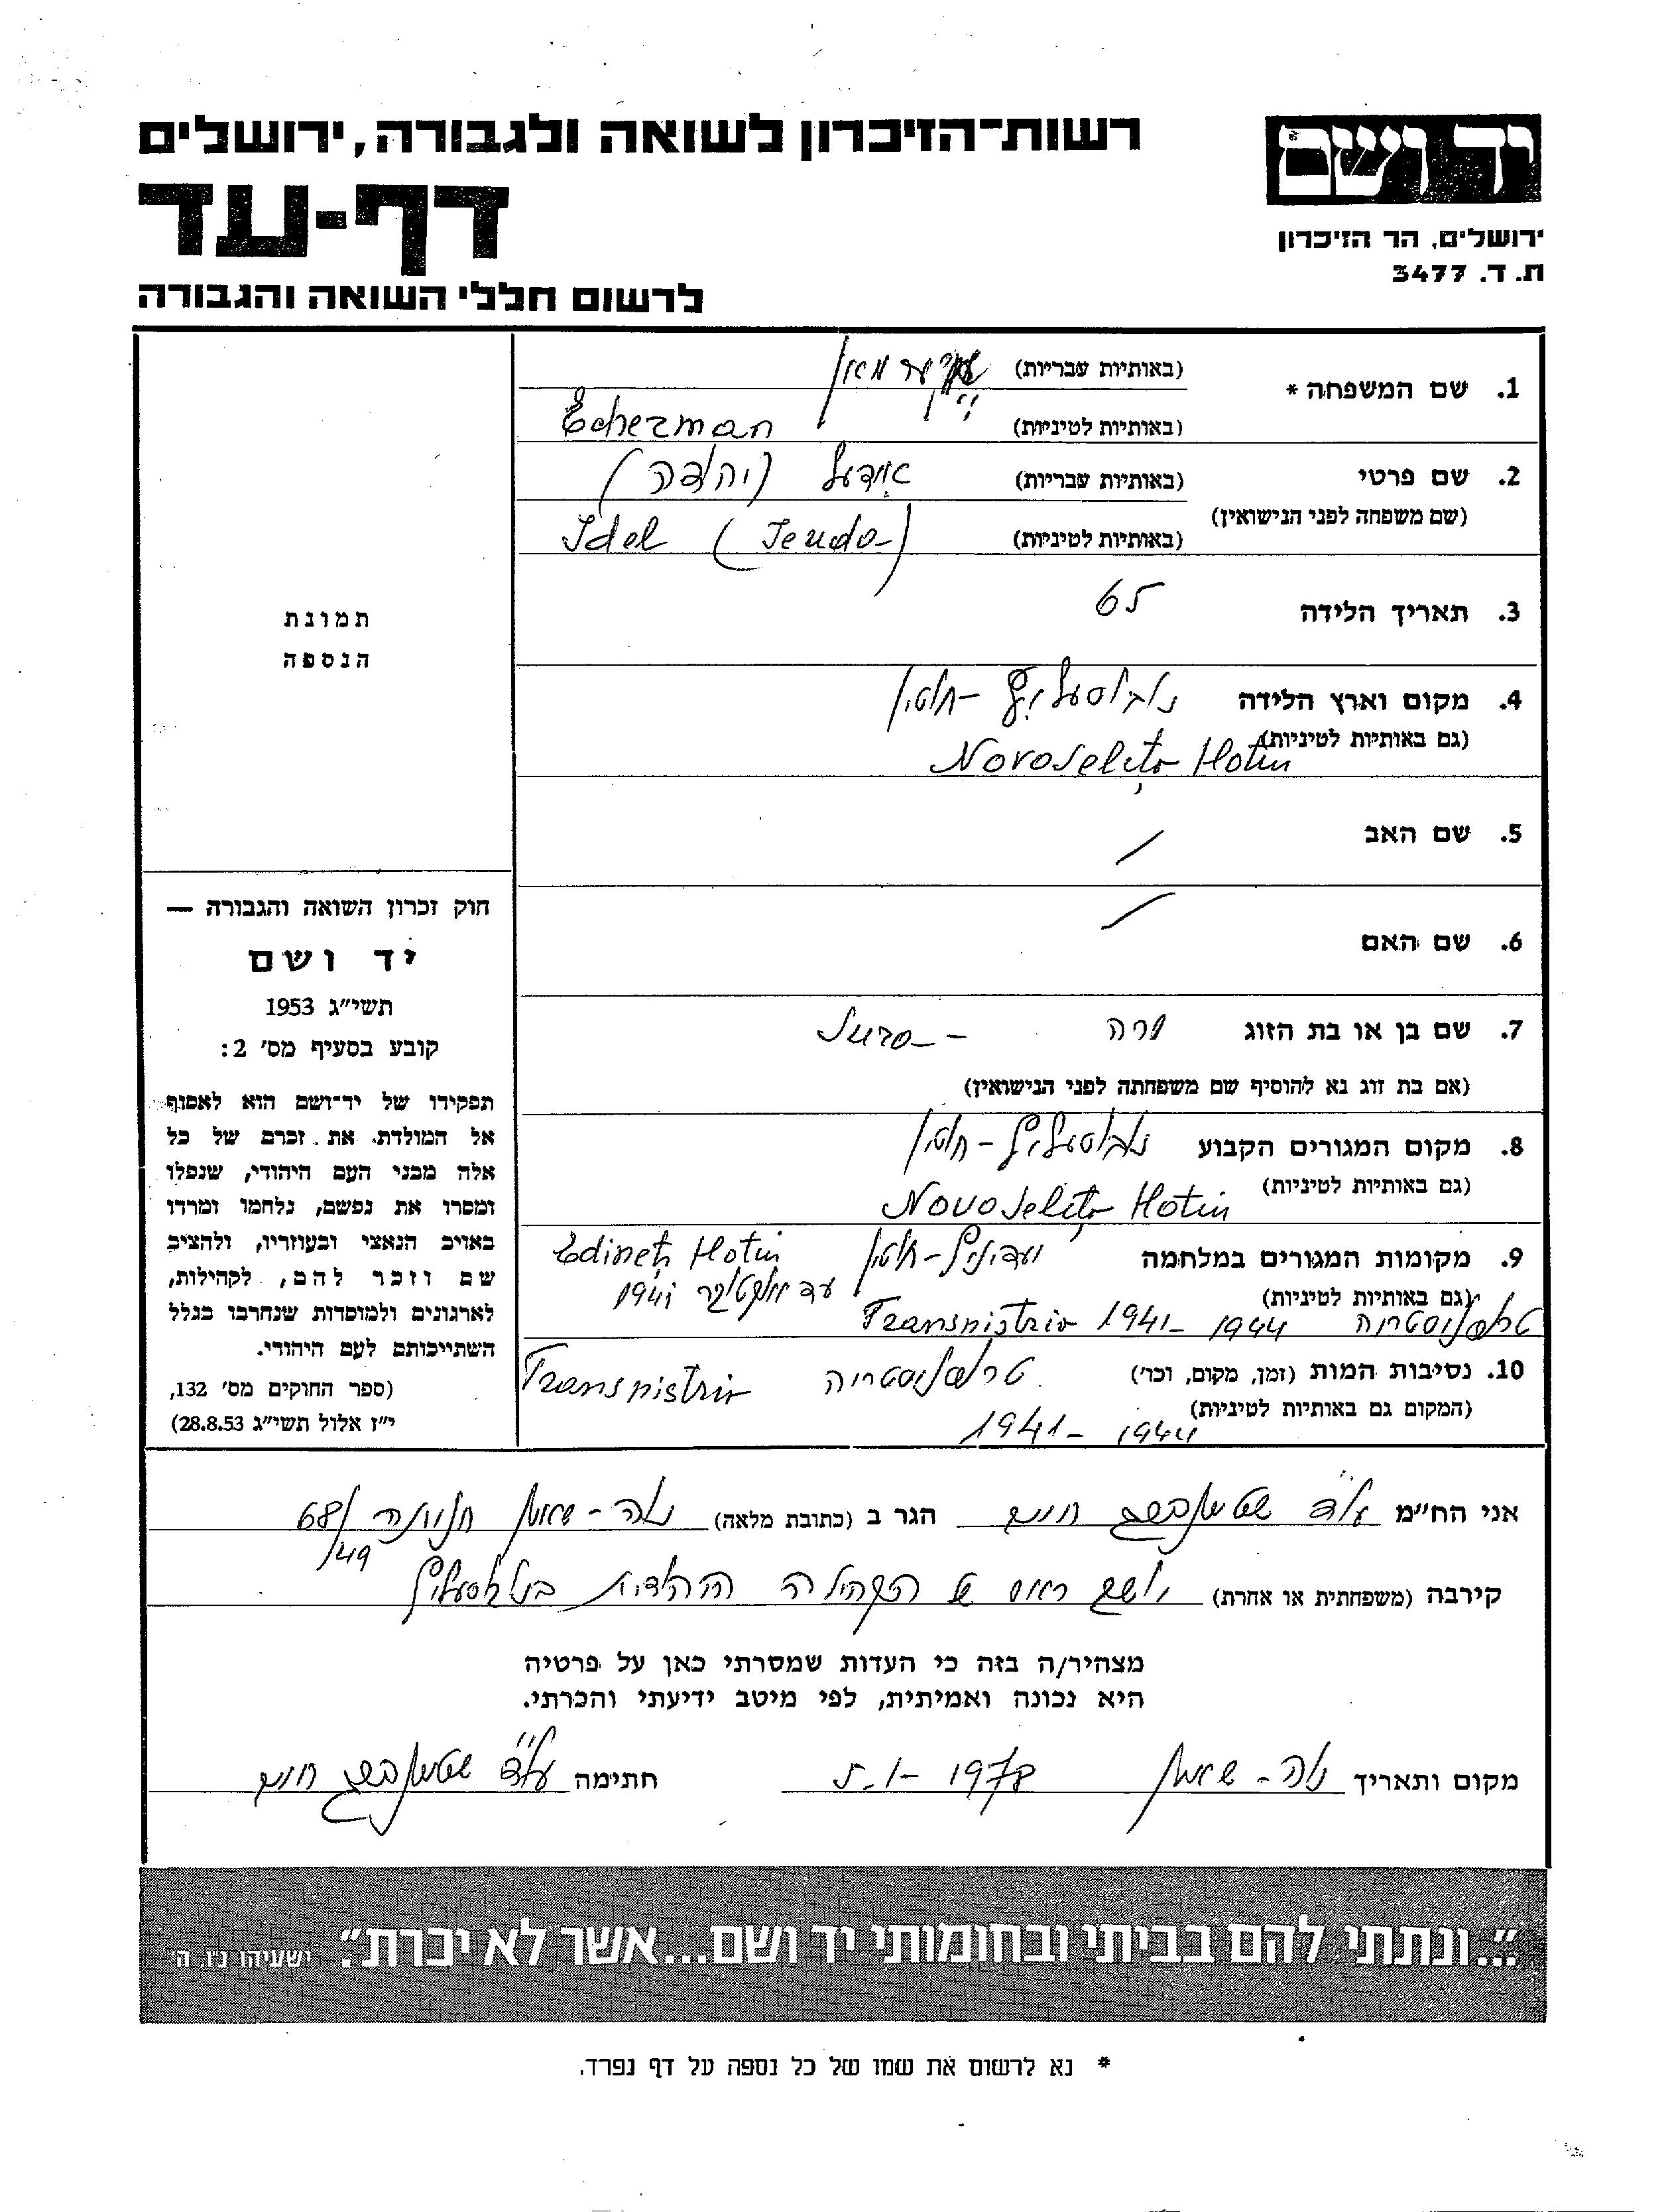 רשות-הזיכרון לשואה ולגבורה, ירושלים
יד ושם
דף-עד
ירושלים, הר הזיכרון
ת. ד. 3477
לרשום חללי השואה והגבורה
1. שם המשפחה * (באותיות עבריות)
(באותיות לטיניות) Echerman
2. שם פרטי (באותיות עבריות) אידעל (יהודה)
(שם משפחה לפני הנישואין) (באותיות לטיניות) Idel (Ieuda)
3. תאריך הלידה 65
4. מקום וארץ הלידה נובוסעליץ - חוטין
(גם באותיות לטיניות) Novoselița Hotin
5. שם האב /
6. שם האם /
7. שם בן או בת הזוג שרה - Sura
(אם בת זוג נא להוסיף שם משפחתה לפני הנישואין)
8. מקום המגורים הקבוע נובוסעליץ - חוטין
(גם באותיות לטיניות) Novoselița Hotin
9. מקומות המגורים במלחמה יעדיניץ - חוטין Edineț Hotin
(גם באותיות לטיניות) עד אוקטובר 1941
טרנסניסטריה 1944 - 1941 Transnistria
10. נסיבות המות (זמן, מקום, וכו') טרנסניסטריה Transnistria
(המקום גם באותיות לטיניות) 1944 - 1941
תמונת
הנספה
חוק זכרון השואה והגבורה —
יד ושם
תשי״ג 1953
קובע בסעיף מס' 2:
תפקידו של יד-ושם הוא לאסוף
אל המולדת את זכרם של כל
אלה מבני העם היהודי, שנפלו
ומסרו את נפשם, נלחמו ומרדו
באויב הנאצי ובעוזריו, ולהציב
שם וזכר להם, לקהילות,
לארגונים ולמוסדות שנחרבו בגלל
השתייכותם לעם היהודי.
(ספר החוקים מס' 132,
י״ז אלול תשי״ג 28.8.53)
אני הח״מ עו״ד שטיינברג חיים הגר ב (כתובת מלאה) נוה-שאנן חניתה 68/
49
קירבה (משפחתית או אחרת) יושב ראש של הקהילה היהודית בנובוסעליץ
מצהיר/ה בזה כי העדות שמסרתי כאן על פרטיה
היא נכונה ואמיתית, לפי מיטב ידיעתי והכרתי.
מקום ותאריך נוה-שאנן 5.1-1978 חתימה עו״ד שטיינברג חיים
"...ונתתי להם בביתי ובחומותי יד ושם...אשר לא יכרת". ישעיהו נ״ו, ה
* נא לרשום את שמו של כל נספה על דף נפרד.